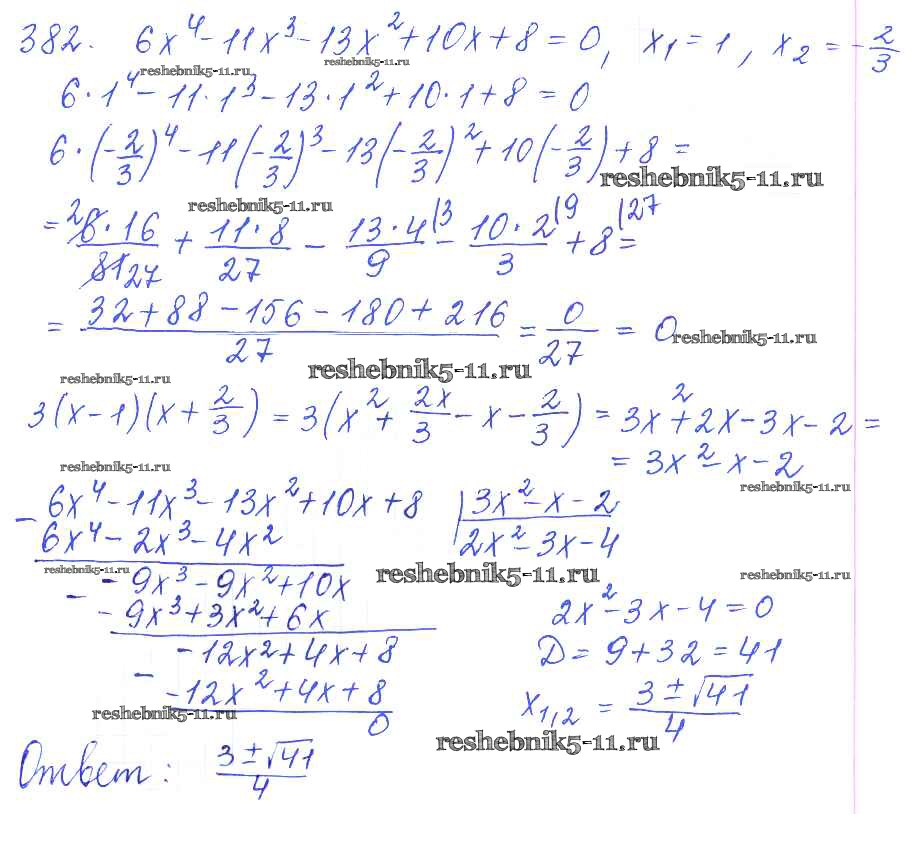 382. 6x⁴ - 11x³ - 13x² + 10x + 8 = 0, x₁ = 1, x₂ = -2/3
reshebnik5-11.ru reshebnik5-11.ru
6·1⁴ - 11·1³ - 13·1² + 10·1 + 8 = 0
6·(-2/3)⁴ - 11(-2/3)³ - 13(-2/3)² + 10(-2/3) + 8 =
reshebnik5-11.ru
reshebnik5-11.ru
= ²6·16/81 27 + 11·8/27 - 13·4/9 |3 - 10·2/3 |9 + 8 |27 =
= 32 + 88 - 156 - 180 + 216/27 = 0/27 = 0
reshebnik5-11.ru
reshebnik5-11.ru
reshebnik5-11.ru
3(x - 1)(x + 2/3) = 3(x² + 2x/3 - x - 2/3) = 3x² + 2x - 3x - 2 =
= 3x² - x - 2
reshebnik5-11.ru
reshebnik5-11.ru
- 6x⁴ - 11x³ - 13x² + 10x + 8 | 3x² - x - 2
6x⁴ - 2x³ - 4x² 2x² - 3x - 4
reshebnik5-11.ru reshebnik5-11.ru reshebnik5-11.ru
- - 9x³ - 9x² + 10x
- 9x³ + 3x² + 6x 2x² - 3x - 4 = 0
- - 12x² + 4x + 8 D = 9 + 32 = 41
- 12x² + 4x + 8 x₁,₂ = 3 ± √41/4
reshebnik5-11.ru
0
reshebnik5-11.ru
Ответ: 3 ± √41/4